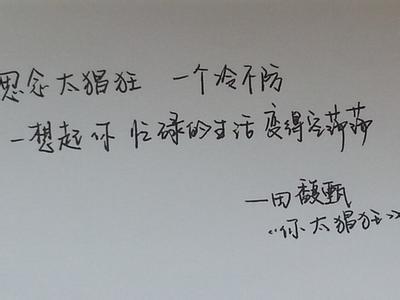 思念太猖狂 一个冷不防
一想起你 忙碌的生活变得空荡荡
—田馥甄
《你太猖狂》